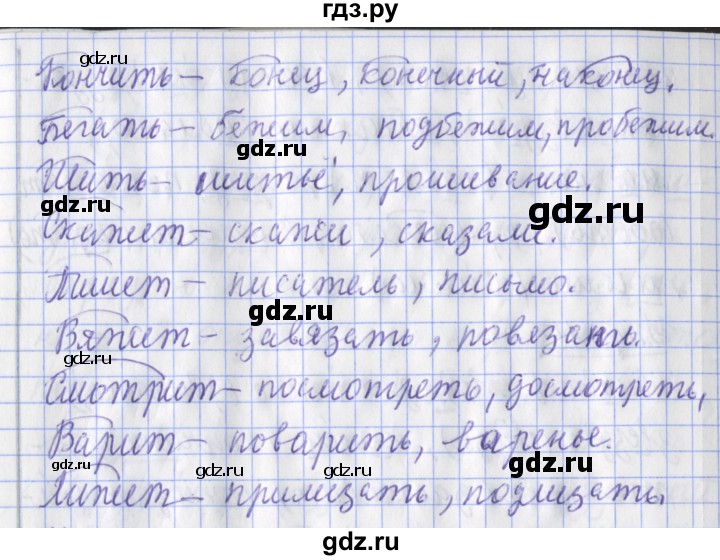 гдз.ру
Кончить – конец, конечный, наконец.
Бегать – бежим, подбежим, пробежим.
gdz.ru
Шить – шитьё, прошивание.
gdz.ru
gdz.ru
Скажет – скажи, сказали.
gdz.ru
Пишет – писатель, письмо.
gdz.ru
Вяжет – завязать, повязать.
gdz.ru
Смотрит – посмотреть, досмотреть,
Варит – поварить, варенье.
gdz.ru
gdz.ru
gdz.ru
Лижет – прилизать, подлизать
gdz.ru